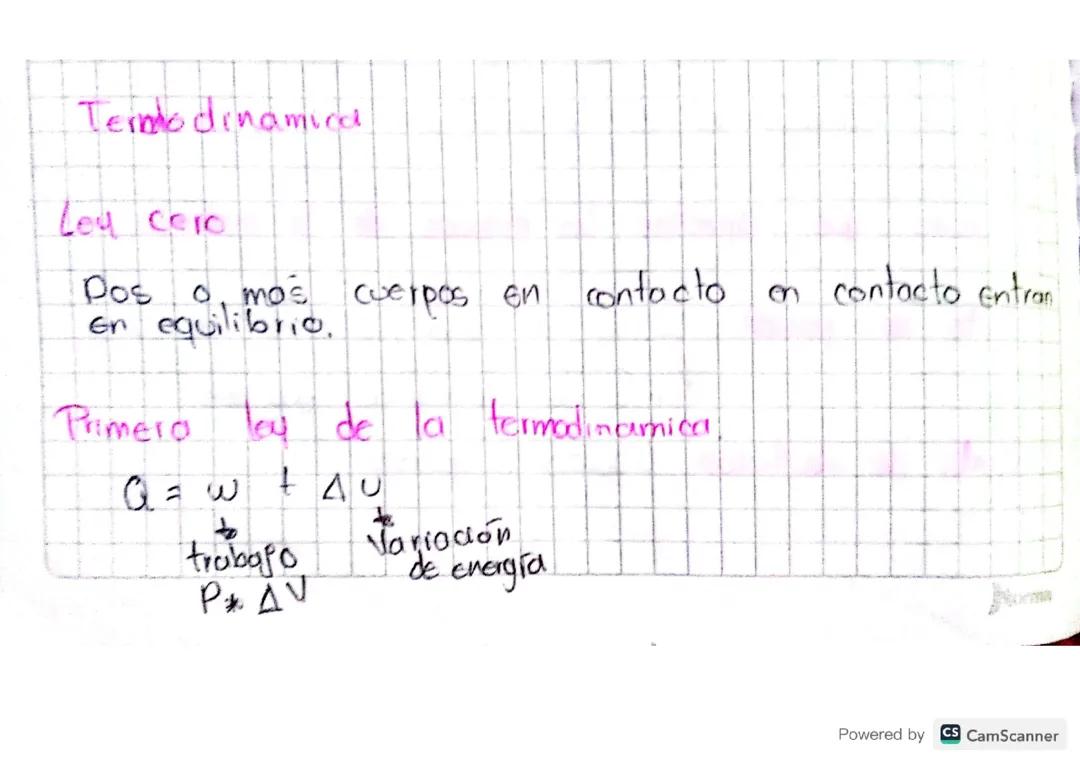 Termodinámica
Ley cero
Dos o más cuerpos en contacto en contacto entran
en equilibrio.
Primera ley de la termodinamica
Q = w + ΔU
trabajo
Variación
de energía
P * ΔV
Norma
Powered by CS CamScanner